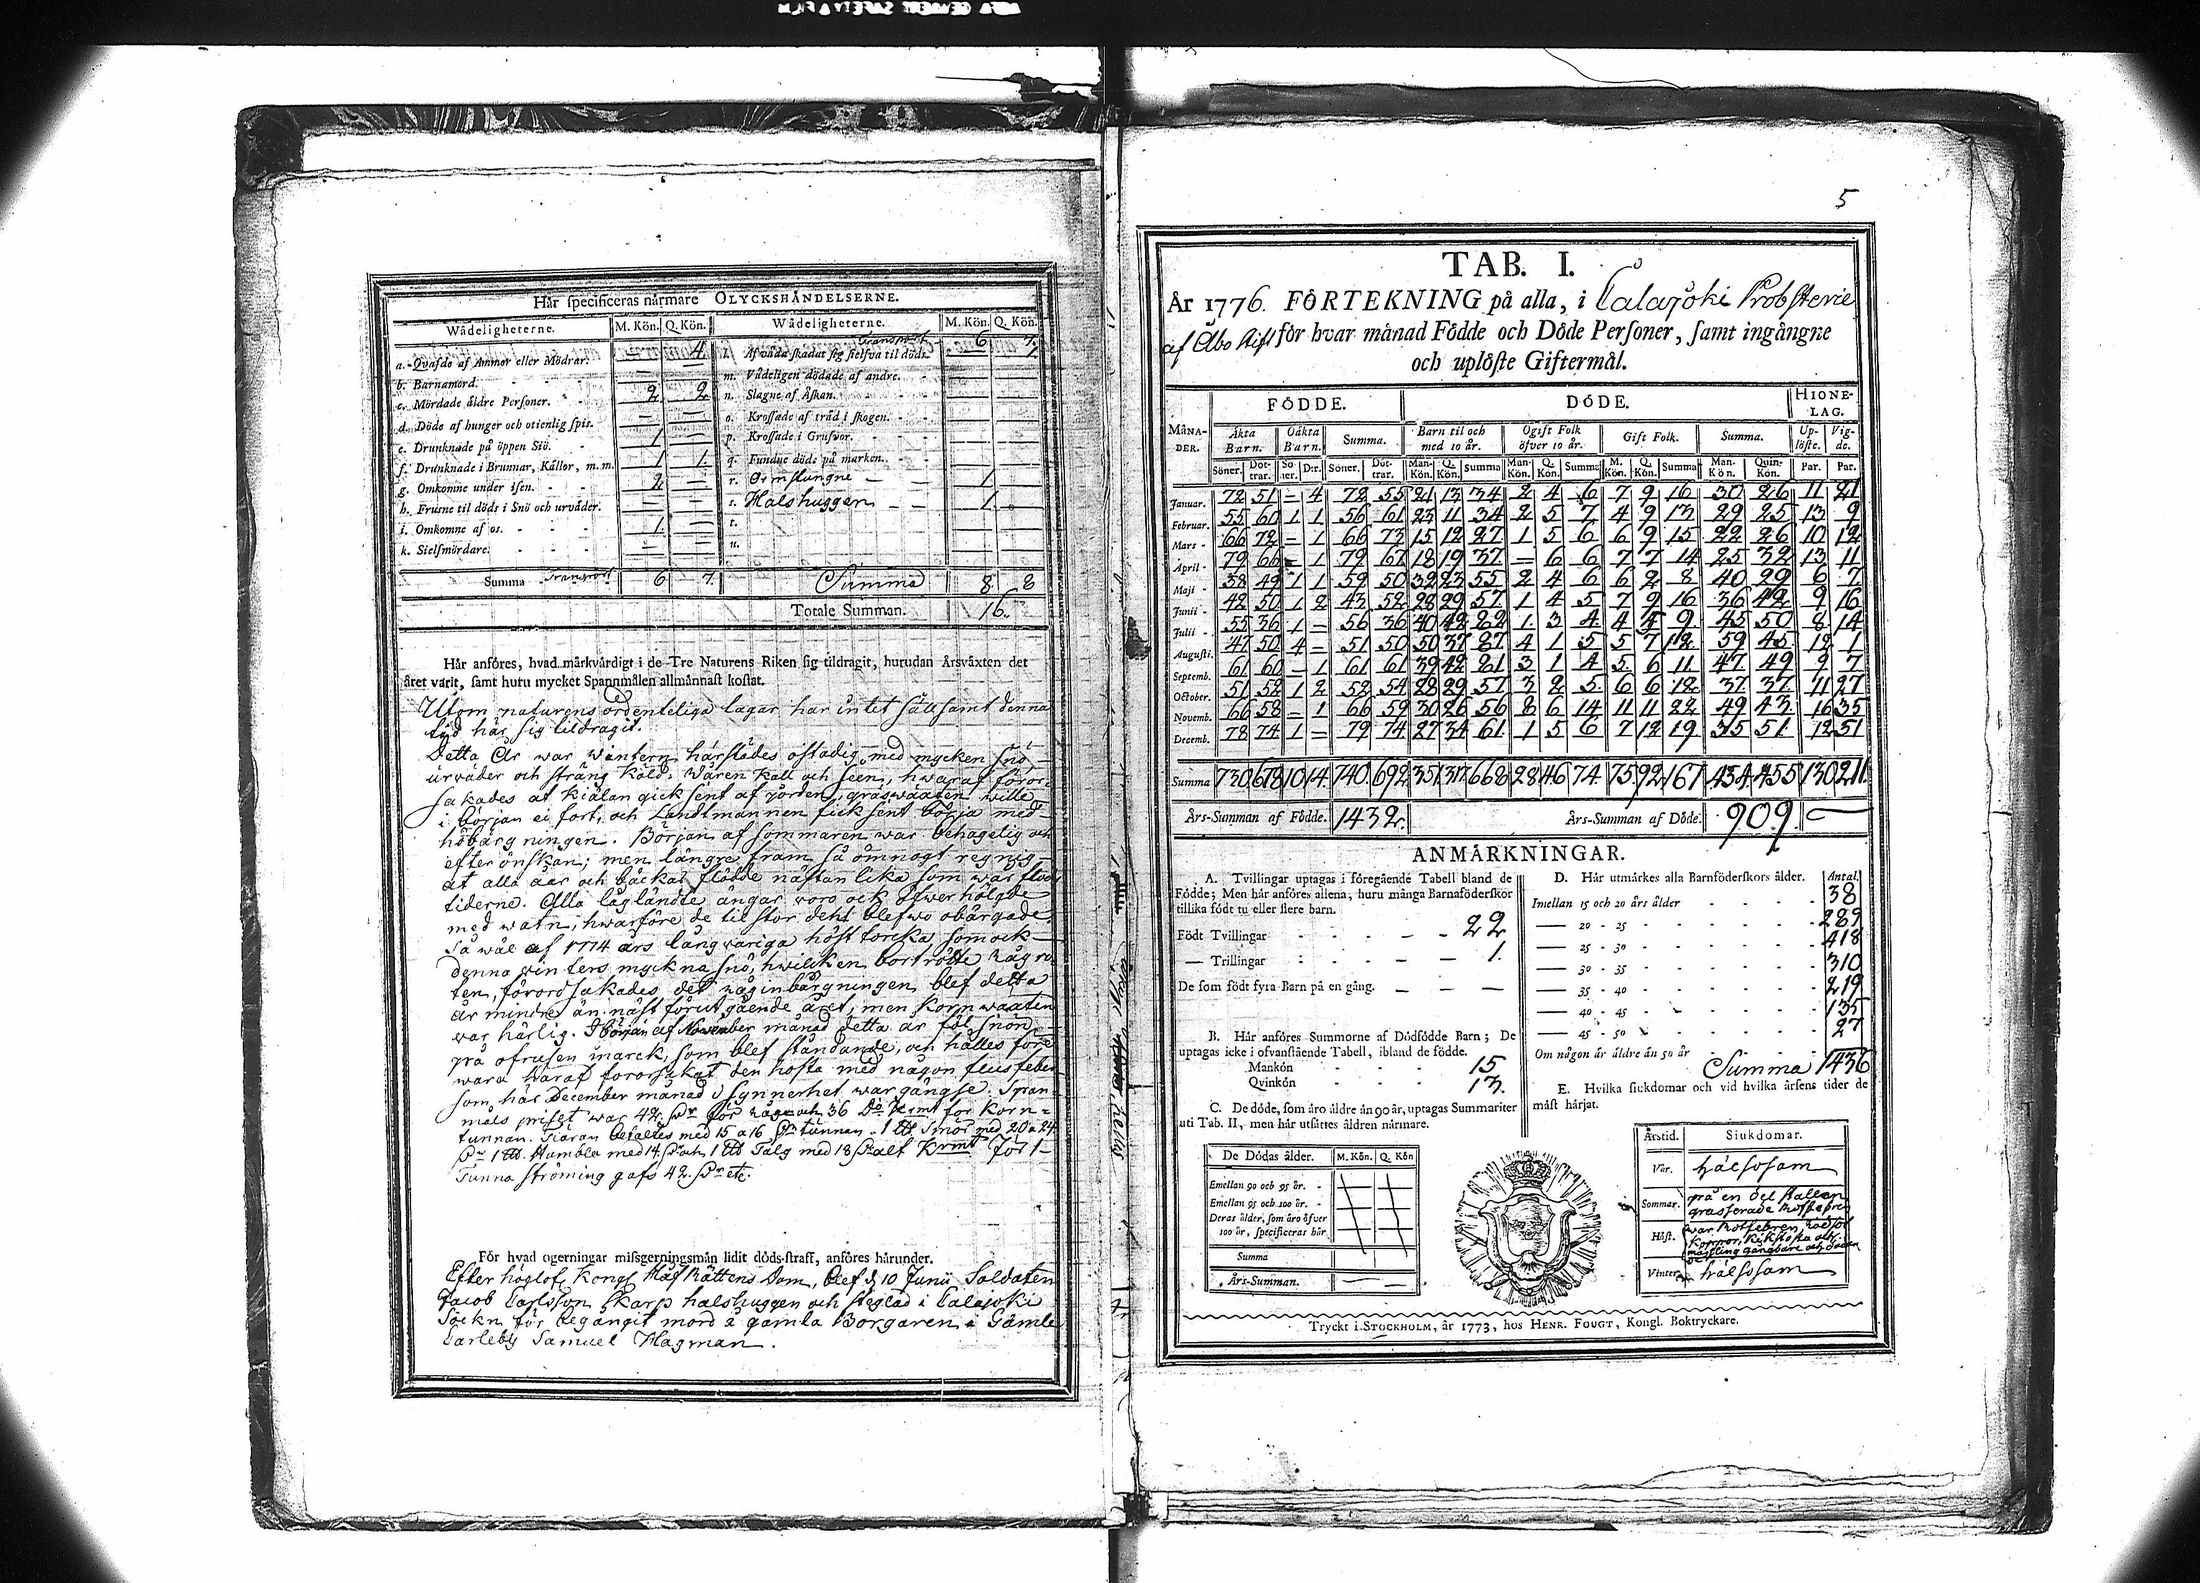 Hår ſpecificeras nårmare OLYCKSHÅNDELSERNE.
Wådeligheterne. M. Kön. Q. Kön. Wådeligheterne. M. Kön. Q. Kön.
Transport 6 7.
a. Qvafde af Ammor eller Mödrar. — 4 l. Af våda ſkadat ſig ſielfva til döds. — 1
b. Barnamord. — — m. Vådeligen dödade af andre.
c. Mördade åldre Perſoner. 2 2 n. Slagne af Åſkan.
d. Döde af hunger och otienlig ſpis. — — o. Kroſſade af tråd i ſkogen.
e. Drunknade på öppen Siö. 1 — p. Kroſſade i Grufvor.
f. Drunknade i Brunnar, Kållor, m. m. 1 1. q. Fundne döde på marken.
g. Omkomne under iſen. 2 — r. Ormstungne — — 1
h. Fruſne til döds i Snö och urvåder. — — s. Halshuggen — — 1.
i. Omkomne af os. 1. — t.
k. Sielfmördare. — — u.
Summa Transport 6 7. Summa 8 8
Totale Summan. 16.
Hår anföres, hvad mårkvårdigt i de Tre Naturens Riken ſig tildragit, hurudan Årsvåxten det
året varit, ſamt huru mycket Spannmålen allmånnaſt koſtat.
Utom naturens ordenteliga lagar har intet sällsamt denna
tid här sig tildragit.
Detta År war wintern härstädes ostadig med mycken snö,
urväder och sträng köld. Wåren kall och seen, hwaraf föror-
sakades at kiälan gick sent af jorden, gräswäxten wille
i början ei fort, och Landtmannen fick sent börja med
höbärgningen. Början af sommaren war behagelig och
efter önskan; men längre fram så ömnogt regnig
at alla åar och bäckar flödde nästan lika som wår flod
tiderne. Alla lågländte ängar woro ock öfwerhölgde
med watn, hwarföre de til stor dehl blefwo obärgade.
Så wäl af 1774 års långwariga höst torcka som ock
denna winters myckna snö, hwilcken bortrötte råg ro-
ten, förordsakades det råginbärgningen blef detta
år mindre än näst förutgående året; men Kornwäxten
war härlig. I början af November månad detta år föll snön
på ofrusen marck, som blef ståndande, och hålles före
wara häraf förorsakat den hosta med någon flussfeber
som här December månad i synnerhet war gängse. Span-
måls priset war 42. Dr. för råg och 36 Do Krmt för korn-
tunnan. Tiäran betaltes med 15 a 16 Dr tunnan. 1 LB Smör med 20 a 24
Dr 1 LB. Humbla med 14 Dr och 1 LB Talg med 18 Dr alt Krmt För 1
Tunna strömming gafs 42. Dr etc.
För hvad ogerningar miſsgerningsmån lidit döds-ſtraff, anföres hårunder.
Efter höglofl. Kongl. Håf Rättens Dom, blef d. 10 Junii Soldaten
Jacob Carlsson Skarp halshuggen och steglad i Calajoki
Sockn för begångit mord å gamla Borgaren i Gamle
Carleby Samuel Hagman.
5
TAB. I.
År 1776. FÖRTEKNING på alla, i Calajoki Probsterie
af Åbo Stift för hvar månad Födde och Döde Perſoner, ſamt ingångne
och uplöſte Giftermål.
MÅNA-DER. FÖDDE. DÖDE. HIONE-LAG.
Åkta Barn. Oåkta Barn. Summa. Barn til och med 10 år. Ogift Folk öfver 10 år. Gift Folk. Summa. Up-löſte. Vig-de.
Söner. Döt-trar. Sö-ner. D:r. Söner. Döt-trar. Man-Kön. Q. Kön. Summa Man-Kön. Q. Kön. Summa M. Kön. Q. Kön. Summa Man-Kön. Quin-Kön. Par. Par.
Januar. 72 51 — 4 72 55 21 13 34 2 4 6 7 9 16 30 26 11 21
Februar. 55 60 1 1 56 61 23 11 34 2 5 7 4 9 13 29 25 13 9
Mars 66 72 — 1 66 73 15 12 27 1 5 6 6 9 15 22 26 10 12
April 79 66 — 1 79 67 18 19 37 — 6 6 7 7 14 25 32 13 11
Maji 58 49 1 1 59 50 32 23 55 2 4 6 6 2 8 40 29 6 7
Junii 42 50 1 2 43 52 28 29 57 1 4 5 7 9 16 36 42 9 16
Julii 55 36 1 — 56 36 40 42 82 1 3 4 4 5 9 45 50 8 14
Auguſti. 47 50 4 — 51 50 50 37 87 4 1 5 5 7 12 59 45 12 1
Septemb. 61 60 — 1 61 61 39 42 81 3 1 4 5 6 11 47 49 9 7
October. 51 52 1 2 52 54 28 29 57 3 2 5 6 6 12 37 37 11 27
Novemb. 66 58 — 1 66 59 30 26 56 8 6 14 11 11 22 49 43 16 35
Decemb. 78 74 1 — 79 74 27 34 61 1 5 6 7 12 19 35 51 12 51
Summa 730 678 10 14 740 692 351 317 668 28 46 74 75 92 167 454 455 130 211
Års-Summan af Födde. 1432. Års-Summan af Döde. 909. —
ANMÅRKNINGAR.
A. Tvillingar uptagas i föregående Tabell bland de
Födde; Men hår anföres allena, huru många Barnaföderſkor
tillika födt tu eller flere barn.
Födt Tvillingar 22
— Trillingar 1.
De ſom födt fyra Barn på en gång. — — —
B. Hår anföres Summorne af Dödfödde Barn; De
uptagas icke i ofvanſtående Tabell, ibland de födde.
Mankön 15
Qvinkön 13.
C. De döde, ſom åro åldre ån 90 år, uptagas Summariter
uti Tab. II, men hår utſåttes åldren nårmare.
De Dödas ålder. M. Kön. Q. Kön
Emellan 90 och 95 år.
Emellan 95 och 100 år.
Deras ålder, ſom åro öfver
100 år, ſpecificeras hår
Summa
Års-Summan. — —
D. Hår utmårkes alla Barnföderſkors ålder. Antal.
Imellan 15 och 20 års ålder 38
— 20 - 25 289
— 25 - 30 418
— 30 - 35 310
— 35 - 40 219
— 40 - 45 135
— 45 - 50 27
Om någon år åldre ån 50 år
Summa 1436
E. Hvilka ſiukdomar och vid hvilka årſens tider de
måſt hårjat.
Årstid. Siukdomar.
Vår. hälsosam
Sommar. på en del ställen
grasserade Rötfebren
Höſt. war Rötfebren, rödsot
Koppor, Kikhosta och
mässling gångbare och döden
Vinter. hälsosam
Tryckt i STOCKHOLM, år 1773, hos HENR. FOUGT, Kongl. Boktryckare.